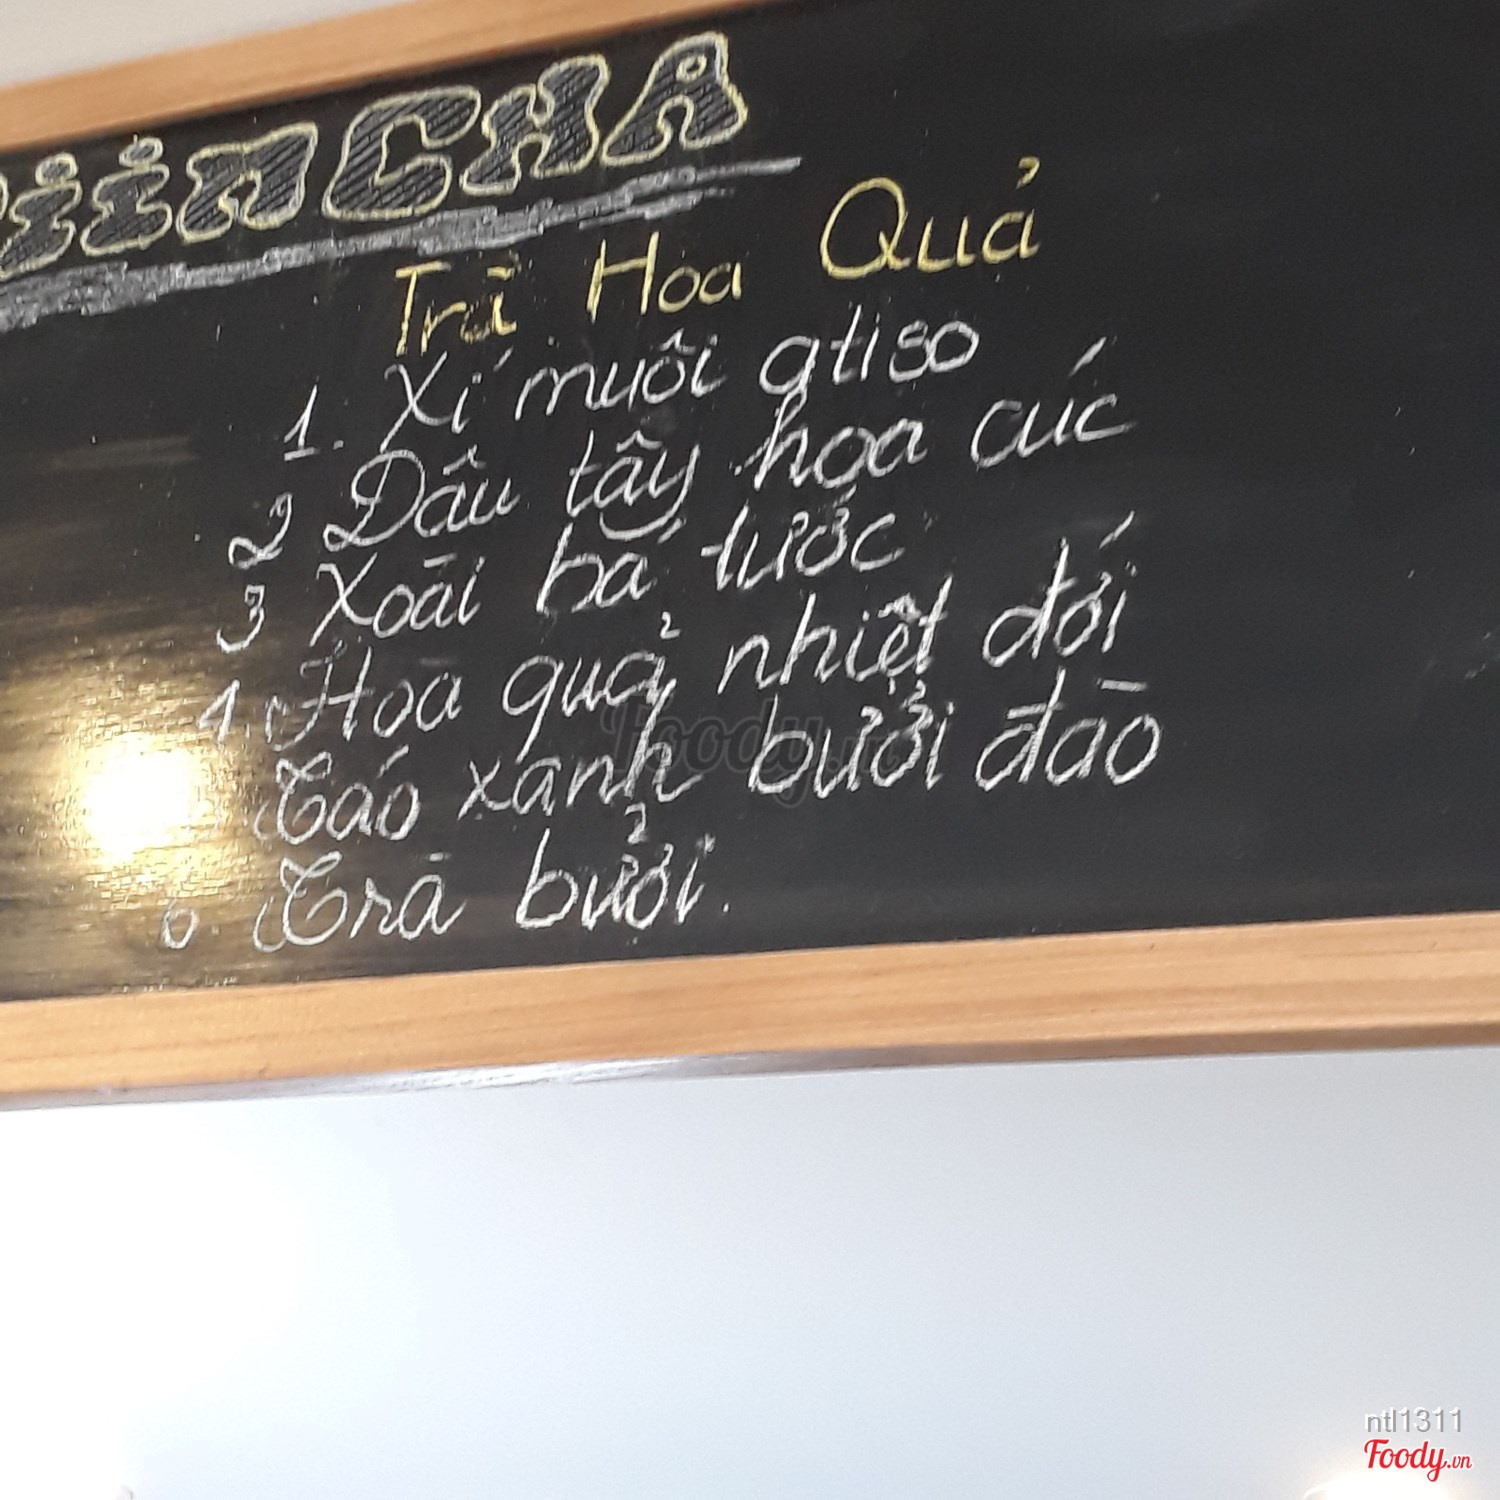 CHA
Trà Hoa Quả
1. Xí muội atiso
2 Dâu tây hoa cúc
3 Xoài bá tước
4. Hoa quả nhiệt đới
Táo xanh bưởi đào
6. Trà bưởi.
Foody.vn
ntl1311
Foody.vn